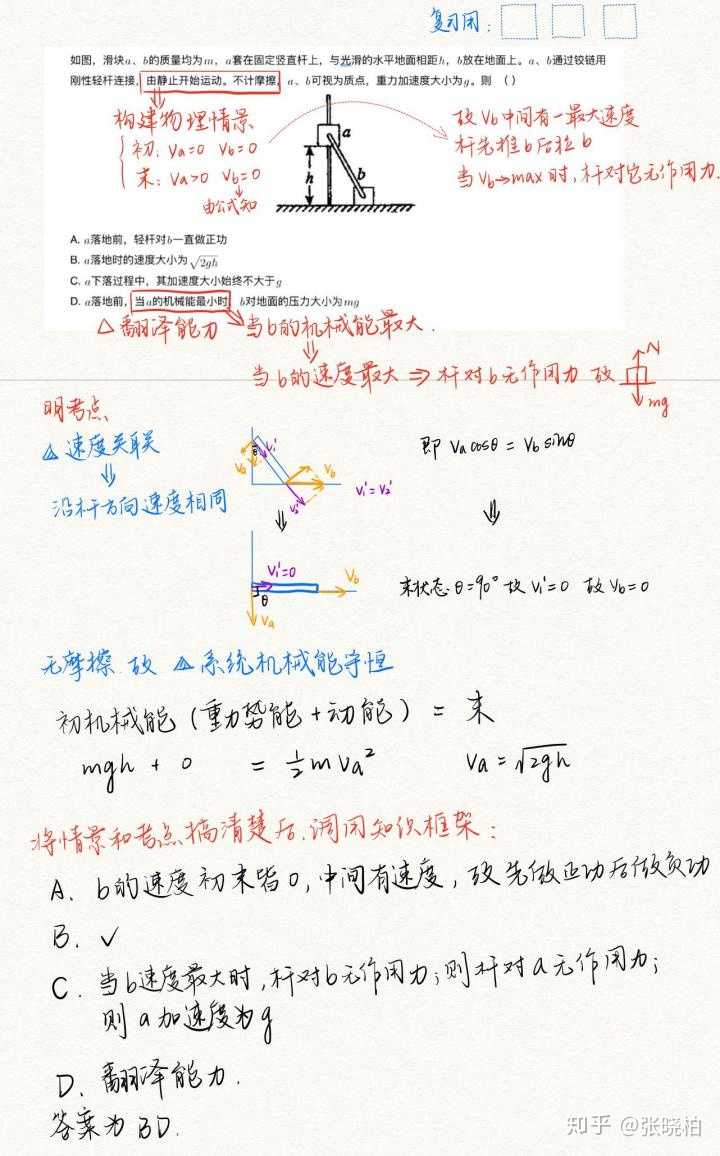 复习用:
如图，滑块a、b的质量均为m，a套在固定竖直杆上，与光滑的水平地面相距h，b放在地面上。a、b通过铰链用
刚性轻杆连接，由静止开始运动。不计摩擦，a、b可视为质点，重力加速度大小为g。则（ ）
构建物理情景
初: Va=0 Vb=0
末: Va>0 Vb=0
由公式知
故Vb中间有一最大速度
杆先推b后拉b
当Vb→max时,杆对它无作用力.
a
b
h
A. a落地前，轻杆对b一直做正功
B. a落地时的速度大小为√2gh
C. a下落过程中，其加速度大小始终不大于g
D. a落地前，当a的机械能最小时，b对地面的压力大小为mg
△翻译能力
当b的机械能最大.
⇓
当b的速度最大 ⇒ 杆对b无作用力 故
N
mg
明考点
△速度关联
⇓
沿杆方向速度相同
θ
V₁'
Va
Vb
V₂'
V₁'=V₂'
即 Va cosθ = Vb sinθ
⇓
⇓
V₁'=0
Vb
θ
Va
末状态 θ=90° 故 V₁'=0 故 Vb=0
无摩擦 故 △系统机械能守恒
初机械能(重力势能+动能) = 末
mgh + 0 = ½mVa² Va=√2gh
将情景和考点搞清楚后,调用知识框架:
A. b的速度初末皆0,中间有速度,故先做正功后做负功
B. ✓
C. 当b速度最大时,杆对b无作用力;则杆对a无作用力;
则a加速度为g
D. 翻译能力.
答案为BD.
知乎 @张晓柏